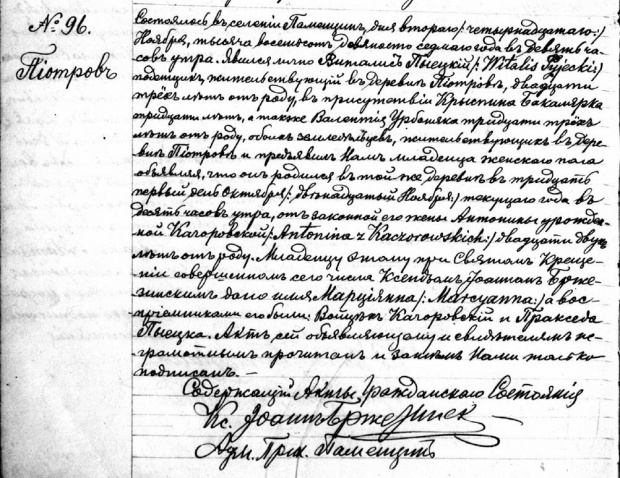 № 96.
Піотровъ
Состоялось въ селеніи Паменцинъ, дня второго /: четырнадцатаго :/
Ноября, тысяча восемьсотъ девяносто седмаго года въ девять ча-
совъ утра. Явился лично Виталисъ Пыецкій /: Witalis Pyjecki :/
поденщик, жительствующій въ деревнѣ Піотровъ, двадцати
трёхъ лѣтъ отъ роду, въ присутствіи Крыспина Бакалярка
тридцати лѣтъ, а также Валентія Урбаняка тридцати трёхъ
лѣтъ отъ роду, обоихъ земледѣльцевъ, жительствующихъ въ дере-
внѣ Піотровъ и предъявилъ Намъ младенца женского пола
объявляя, что онъ родился въ той же деревнѣ въ тридцать
первый день Октября /: двѣнадцатый Ноября :/ текущаго года въ
десять часовъ утра, отъ законной его жены Антонины урожден-
ной Качоровской /: Antonina z Kaczorowskich :/ двадцати двухъ
лѣтъ отъ роду. Младенцу этому при Святомъ Креще-
ніи совершенномъ сего числа Ксендзомъ Іоаномъ Брже-
зинскимъ дано имя Марціянна /: Marcyanna :/ а вос-
пріемниками его были: Войцѣхъ Качоровскій и Пракседа
Пыецка. Актъ сей объявляющему и свидѣтелямъ не-
грамотнымъ прочитанъ и затѣмъ Нами только
подписанъ. —
Содержащій Акты Гражданскаго Состоянія
Кс. Іоаннъ Бржезинск
Адм. Прих. Паменцинъ